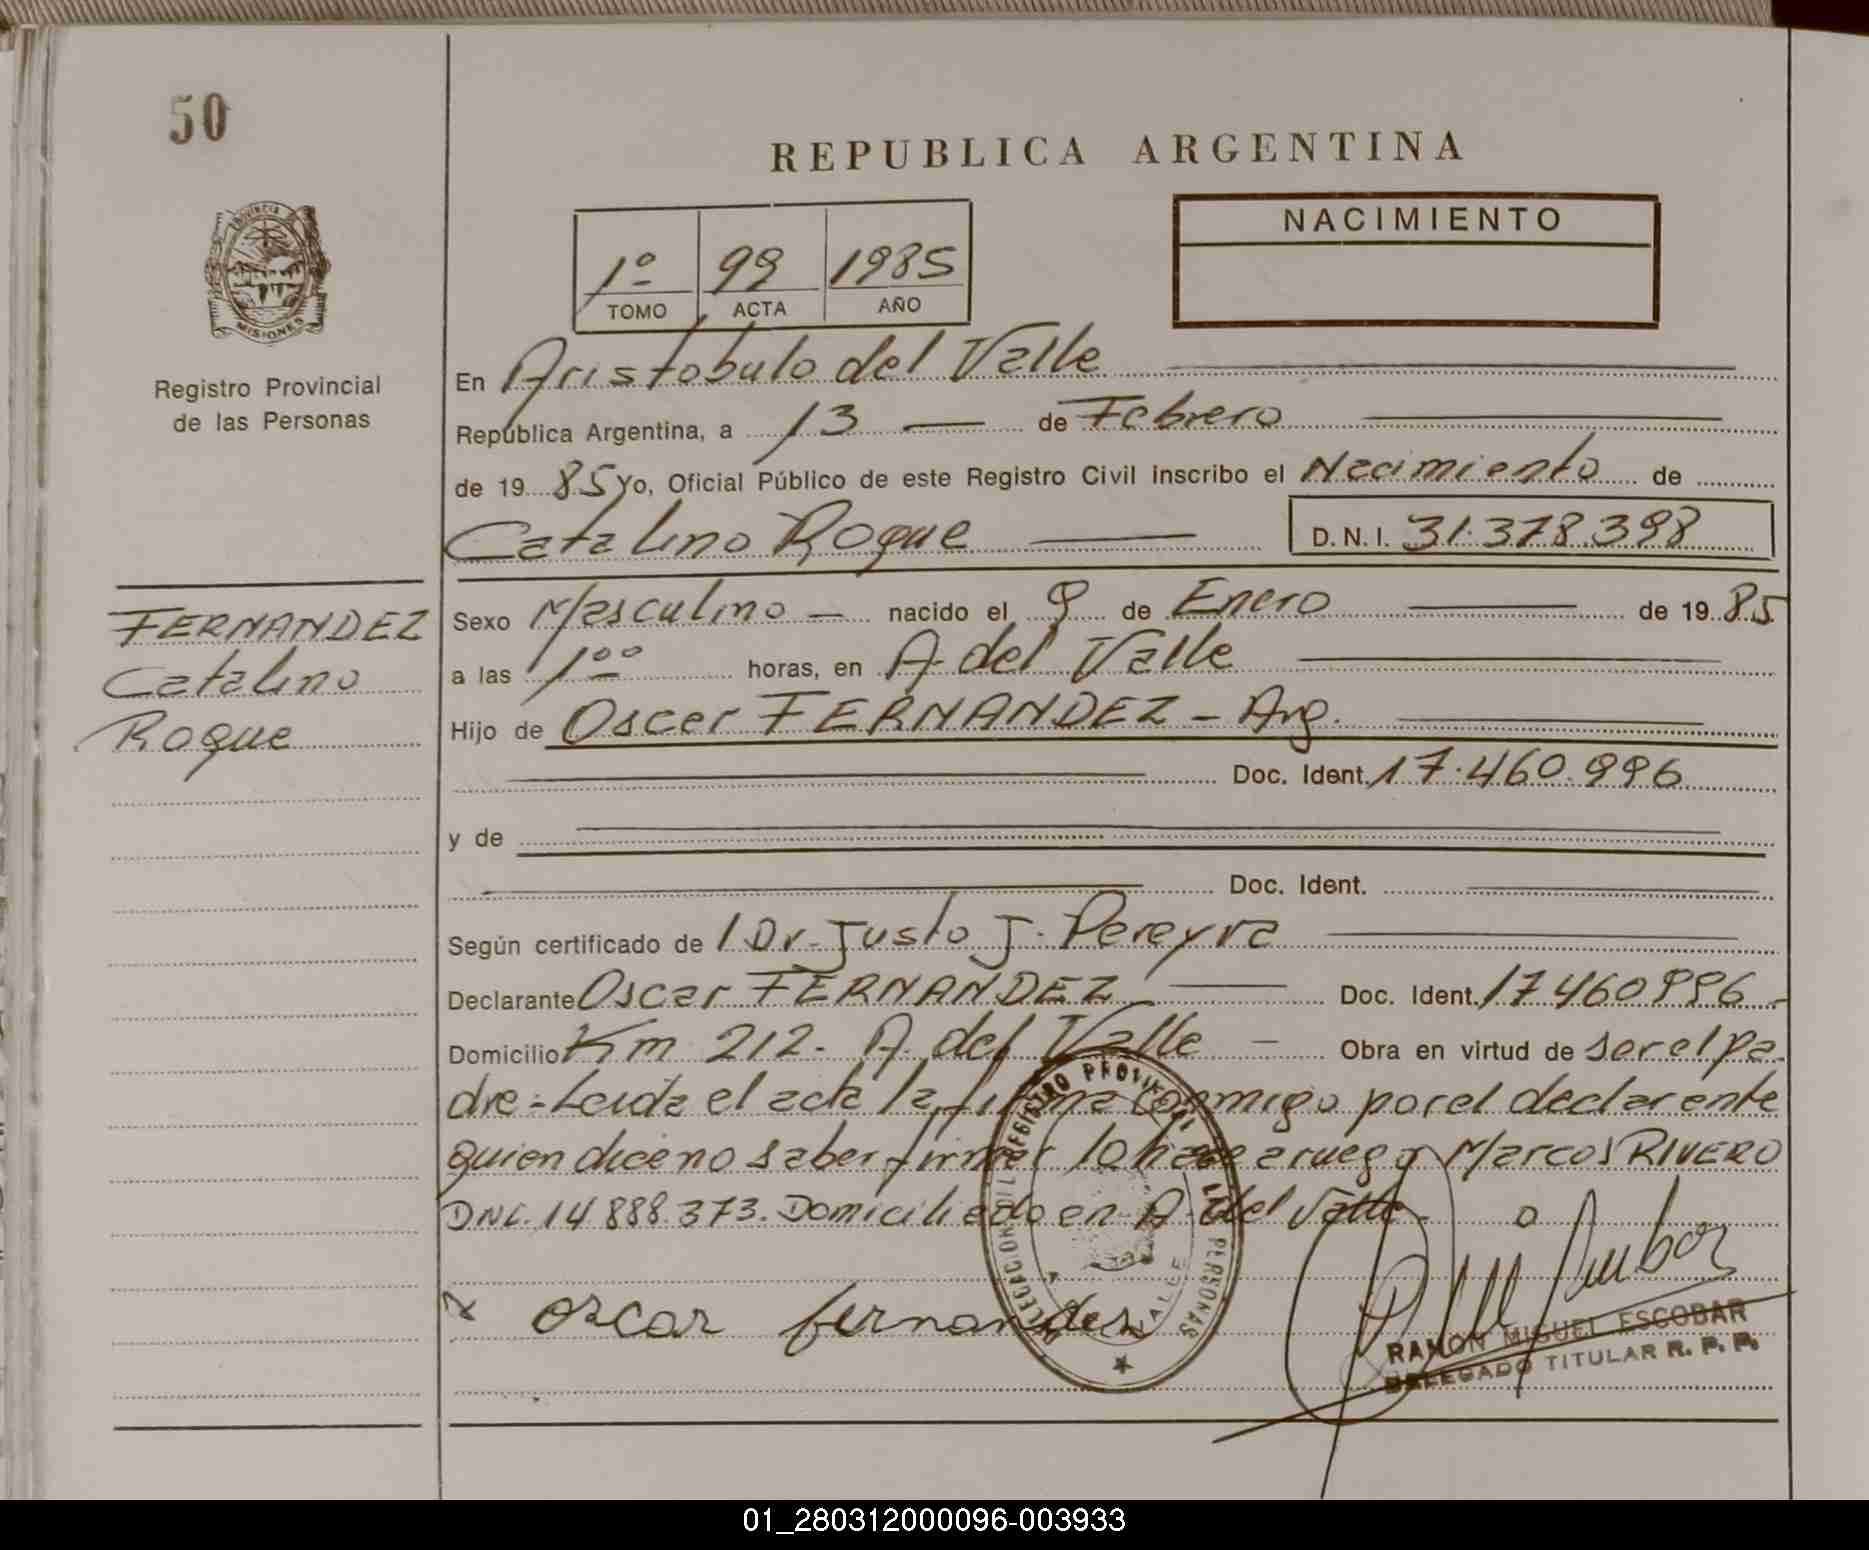 50
REPUBLICA ARGENTINA
PROVINCIA
MISIONES
1º 99 1985
TOMO ACTA AÑO
NACIMIENTO
Registro Provincial
de las Personas
En Aristobulo del Valle
República Argentina, a 13 de Febrero
de 19 85 Yo, Oficial Público de este Registro Civil inscribo el Nacimiento de
Catalino Roque D.N.I. 31.378.398
FERNANDEZ
Catalino
Roque
Sexo Masculino nacido el 9 de Enero de 19 85
a las 1ºº horas, en A. del Valle
Hijo de Oscar FERNANDEZ - Arg.
Doc. Ident. 17.460.996
y de
Doc. Ident.
Según certificado de Dr. Justo J. Pereyra
Declarante Oscar FERNANDEZ Doc. Ident. 17460996
Domicilio Km 212. A. del Valle - Obra en virtud de ser el pa
dre - Leida el acta la firma conmigo por el declarante
quien dice no saber firmar lo hace a ruego Marcos RIVERO
DNI. 14888.373. Domiciliado en A. del Valle
oscar fernandez
DELEGACION DEL REGISTRO PROVINCIAL DE LAS PERSONAS
A. DEL VALLE
RAMON MIGUEL ESCOBAR
DELEGADO TITULAR R. P. P.
01_280312000096-003933